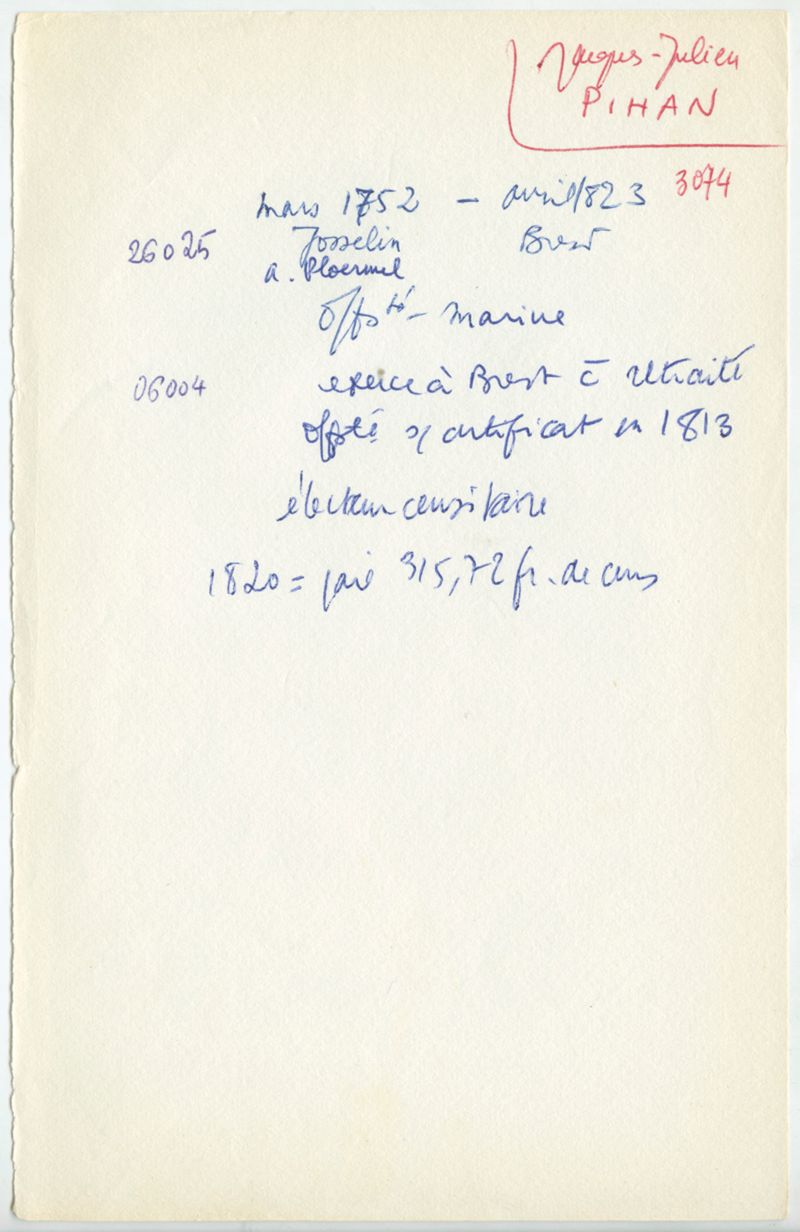 Jacques-Julien
PIHAN
3074
mars 1752 - avril 1823
26025 Josselin Brest
a. Ploermel
offté - marine
06004 exerce à Brest c̄ retraité
offté s/ certificat en 1813
électeur censitaire
1820 = paie 315,72 fr. de cens